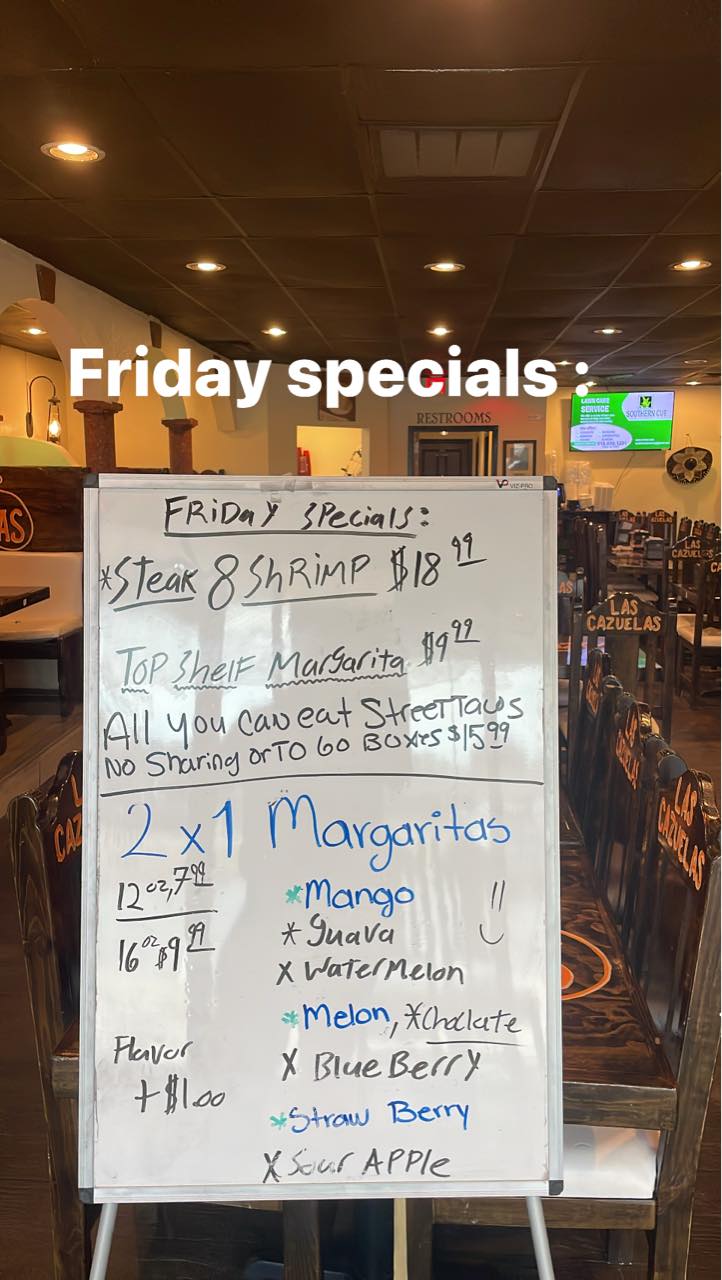 Friday specials :
RESTROOMS
LAWN CARE
SERVICE
SOUTHERN CUT
VIZ-PRO
AS
FRIDAY SPecials:
*Steak & SHRIMP $18 99
TOP SHelf Margarita $9 99
All you can eat Street Tacos
No Sharing or TO GO BOXES $15 99
2 x 1 Margaritas
12 oz, 7 99
16 oz $9 99
*Mango
*Guava
X WaterMelon
*Melon, *Choclate
X Blue Berry
*Straw Berry
X Sour APPle
Flavor
+ $1.00
LAS
CAZUELAS
LAS
CAZUELAS
LAS
CAZUELAS